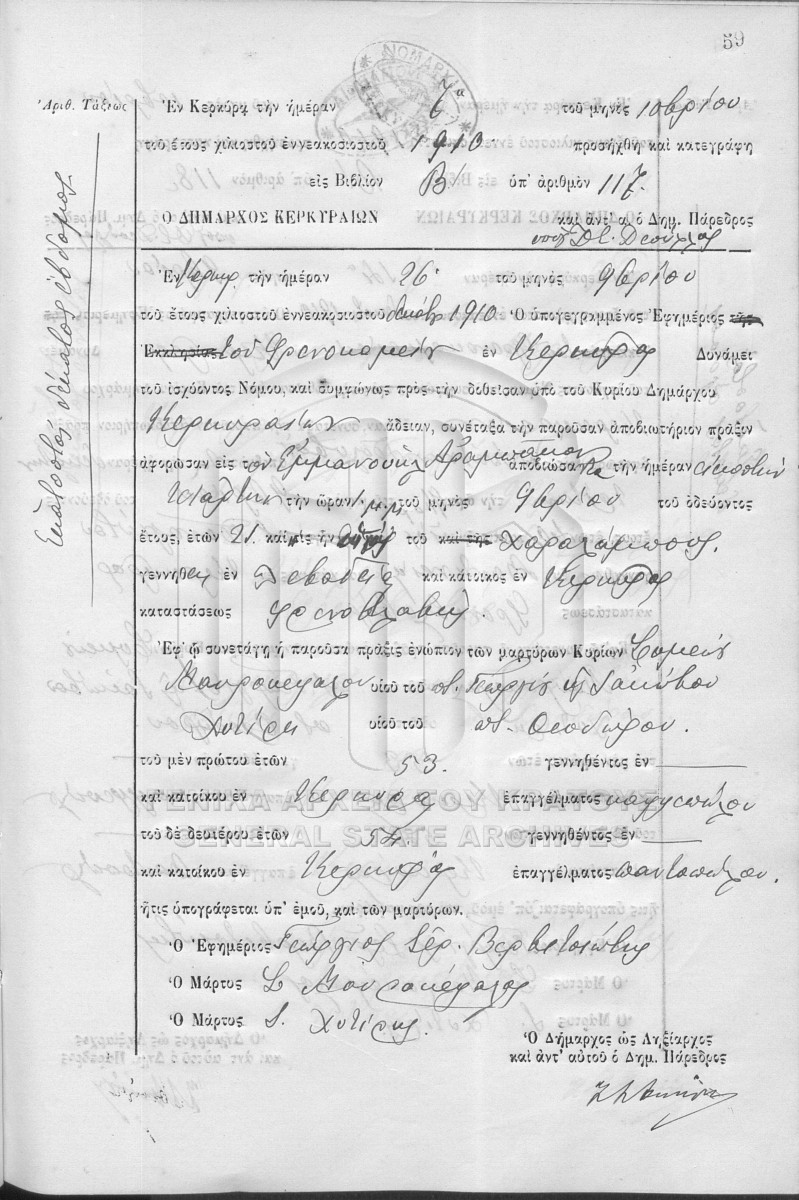 59
Ἀριθ. Τάξεως
Ἑκατοστὸς δέκατος ἕβδομος
Ἐν Κερκύρᾳ τὴν ἡμέραν 7η τοῦ μηνὸς 10βρίου
τοῦ ἔτους χιλιοστοῦ ἐννεακοσιοστοῦ 1910 προσήχθη καὶ κατεγράφη
εἰς Βιβλίον Β' ὑπ' ἀριθμὸν 117.
Ο ΔΗΜΑΡΧΟΣ ΚΕΡΚΥΡΑΙΩΝ καὶ ἀντ' α. ὁ Δημ. Πάρεδρος
Ἐν Κερκύρ. τὴν ἡμέραν 26 τοῦ μηνὸς 9βρίου
τοῦ ἔτους χιλιοστοῦ ἐννεακοσιοστοῦ δεκάτου 1910 Ὁ ὑπογεγραμμένος Ἐφημέριος τῆς
Ἐκκλησίας τοῦ Φρενοκομείου ἐν Κερκύρᾳ Δυνάμει
τοῦ ἰσχύοντος Νόμου, καὶ συμφώνως πρὸς τὴν δοθεῖσαν ὑπὸ τοῦ Κυρίου Δημάρχου
Κερκυραίων ἄδειαν, συνέταξα τὴν παροῦσαν ἀποβιωτήριον πρᾶξιν
ἀφορῶσαν εἰς τὸν Ἐμμανουὴλ ἀποβιώσαντα τὴν ἡμέραν εἰκοστὴν
τὴν ὥραν 1 μ.μ. τοῦ μηνὸς 9βρίου τοῦ ὁδεύοντος
ἔτους, ἐτῶν 21 καὶ τοῦ καὶ τῆς Χαραλάμπους.
γεννηθεὶς ἐν Λεβαδείᾳ καὶ κάτοικος ἐν Κερκύρᾳ
καταστάσεως φρενοβλαβής.
Ἐφ' ᾧ συνετάγη ἡ παροῦσα πρᾶξις ἐνώπιον τῶν μαρτύρων Κυρίων
Μαυροκεφάλου υἱοῦ τοῦ ποτ. Γεωργίου καὶ Ἰακώβου
Χυτήρη υἱοῦ τοῦ ποτ. Θεοδώρου.
τοῦ μὲν πρώτου ἐτῶν 53. γεννηθέντος ἐν
καὶ κατοίκου ἐν Κερκύρᾳ ἐπαγγέλματος καφφεπώλου
τοῦ δὲ δευτέρου ἐτῶν 54 γεννηθέντος ἐν
καὶ κατοίκου ἐν Κερκύρᾳ ἐπαγγέλματος παντοπώλου.
ἥτις ὑπογράφεται ὑπ' ἐμοῦ, καὶ τῶν μαρτύρων.
Ὁ Ἐφημέριος Γεώργιος
Ὁ Μάρτυς Σ Μαυροκέφαλος
Ὁ Μάρτυς Ι. Χυτίρης
Ὁ Δήμαρχος ὡς Ληξίαρχος
καὶ ἀντ' αὐτοῦ ὁ Δημ. Πάρεδρος
ΓΕΝΙΚΑ ΑΡΧΕΙΑ ΤΟΥ ΚΡΑΤΟΥΣ
GENERAL STATE ARCHIVES